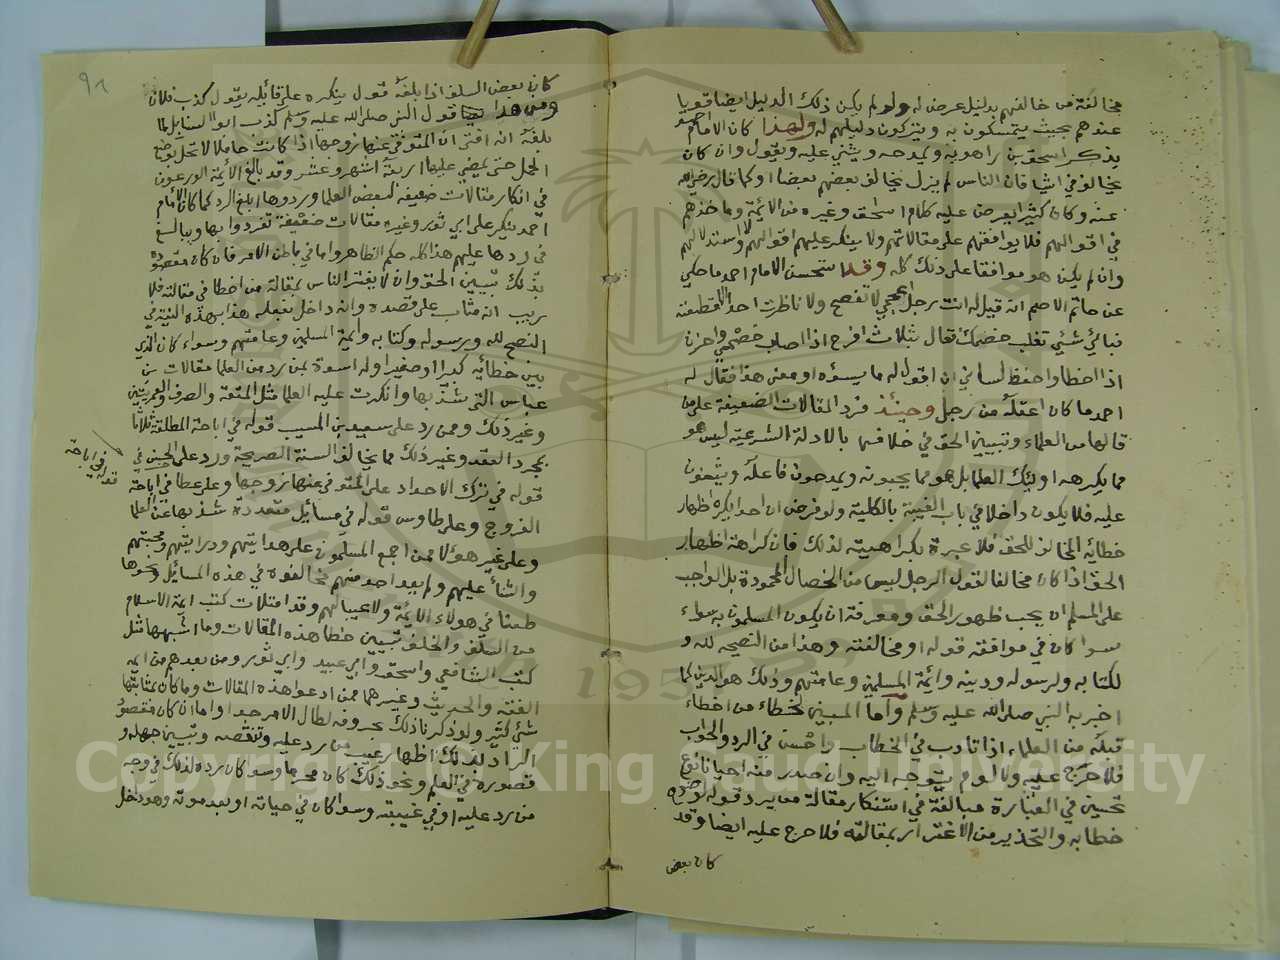 مخالفة من خالفهم بدليل عرض له ولو لم يكن ذلك الدليل ايضا قويا
عندهم بحيث يتمسكون به ويتركون دليلهم له ولهذا كان الامام احمد
يذكر اسحق بن راهويه ويمدحه ويثني عليه ويقول وان كان
يخالف في اشيا فان الناس لم يزل يخالف بعضهم بعضا او كما قال رضي الله
عنه وكان كثيرا يعرض عليه كلام اسحق وغيره من الائمة وماخذهم
في اقوالهم فلا يوافقهم على مقالاتهم ولا ينكر عليهم اقوالهم ولا استدلالهم
وان لم يكن هو موافقا على ذلك كله وقد استحسن الامام احمد ما حكي
عن حاتم الاصم انه قيل له انت رجل اعجمي لا تفصح ولا ناظرت احدا الا قطعته
فبائي شئي تغلب خصمك فقال بثلاث افرح اذا اصاب خصمي واحزن
اذا اخطا واحفظ لساني ان اقول له ما يسؤه او معنى هذا فقال له
احمد ما كان اعقله من رجل وحينئذ فرد المقالات الضعيفة على من
قالها من العلماء وتبيين الحق في خلافها بالادلة الشرعية ليس هو
مما يكرهه اولئك العلما بل هو مما يحبونه ويمدحون فاعله ويثنون
عليه فلا يكون داخلا في باب الغيبة بالكلية ولو فرض ان احدا يكره اظهار
خطائه المخالف للحق فلا عبرة بكراهيته لذلك فان كراهة اظهار
الحق اذا كان مخالفا لقول الرجل ليس من الخصال المحمودة بل الواجب
على المسلم ان يحب ظهور الحق ومعرفة ان يكون المسلمون به سواء
سوا كان في موافقة قوله او مخالفته وهذا من النصيحة لله و
لكتابه ولرسوله ودينه وائمة المسلمين وعامتهم وذلك هو الدين كما
اخبر به النبي صلى الله عليه وسلم وأما المبين لخطاء من اخطاء
قبله من العلماء اذا تادب في الخطاب واحسن في الرد والجواب
فلا حرج عليه ولا لوم يتوجه اليه وان صدر منه احيانا نوع
تحسين في العبارة مبالغة في استنكار مقالة من يرد قوله
خطابه والتحذير من الاغترار بمقالته فلا حرج عليه ايضا وقد
كان بعض
٩٨
كان بعض السلف اذا بلغه قول ينكره على قائله يقول كذب فلان
ومن هذا قول النبي صلى الله عليه وسلم كذب ابو السنابل لما
بلغه انه افتى ان المتوفى عنها زوجها اذا كانت حاملا لا تحل بوضع
الحمل حتى يمضي عليها اربعة اشهر وعشر وقد بالغ الائمة الورعون
في انكار مقالات ضعيفة لبعض العلما وردوها ابلغ الرد كما كان الامام
احمد ينكر على ابي ثور وغيره مقالات ضعيفة تفردوا بها ويبالغ
في ردها عليهم هذا كله حكم الظاهر واما في باطن الامر فان كان مقصوده
بذلك تبيين الحق وان لا يغتر الناس بمقالة من اخطا في مقالته فلا
ريب انه مثاب على قصده وانه داخل بفعله هذا بهذه النية في
النصح لله ورسوله وكتابه وائمة المسلمين وعامتهم وسواء كان الذي
بين خطائه كبيرا او صغيرا وله اسوة بمن رد من العلما مقالات بن
عباس التي شذ بها وانكرت عليه العلما مثل المتعة والصرف والعمريتين
وغير ذلك وممن رد على سعيد بن المسيب قوله في اباحة المطلقة ثلاثا
بمجرد العقد وغير ذلك مما يخالف السنة الصريحة ورد على الحسن في
قوله في ترك الاحداد على المتوفى عنها زوجها وعلى عطا في اباحة
الفروج وعلى طاوس قوله في مسائل متعددة شذ بها عن العلما
وعلى غير هؤلا ممن اجمع المسلمون على هدايتهم ودرايتهم ومحبتهم
والثنا عليهم ولم يعد احد منهم مخالفوه في هذه المسائل ونحوها
طعنا في هولاء الائمة ولا عيبا لهم وقد امتلات كتب ائمة الاسلام
من السلف والخلف بتبيين خطا هذه المقالات وما اشبهها مثل
كتب الشافعي واسحق وابي عبيد وابي ثور ومن بعدهم من ايمة
الفقه والحديث وغيرهما ممن ادعوا هذه المقالات وما كان بمثابتها
شئ كثير ولو ذكرنا ذلك بحروفه لطال الامر جدا واما ان كان مقصود
الراد لذلك اظهار عيب من رد عليه وتنقصه وتبيين جهله و
قصوره في العلم ونحو ذلك كان محرما وسوا كان رده لذلك في وجه
من رد عليه او في غيبته وسوا كان في حياته او بعد موته وهو داخل
قوله في اباحة
Copyright © King Saud University
1957